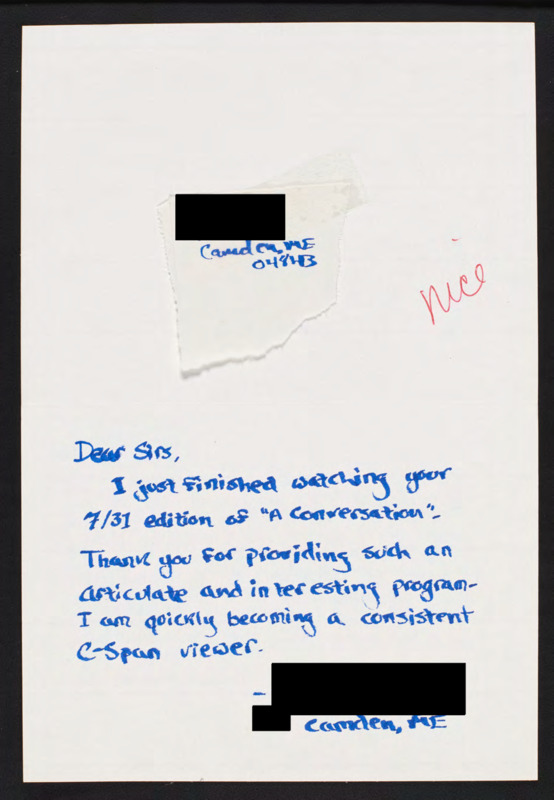 Camden, ME
04843
nice
Dear Sirs,
I just finished watching your
7/31 edition of "A Conversation".
Thank you for providing such an
articulate and interesting program-
I am quickly becoming a consistent
C-Span viewer.
-
Camden, ME